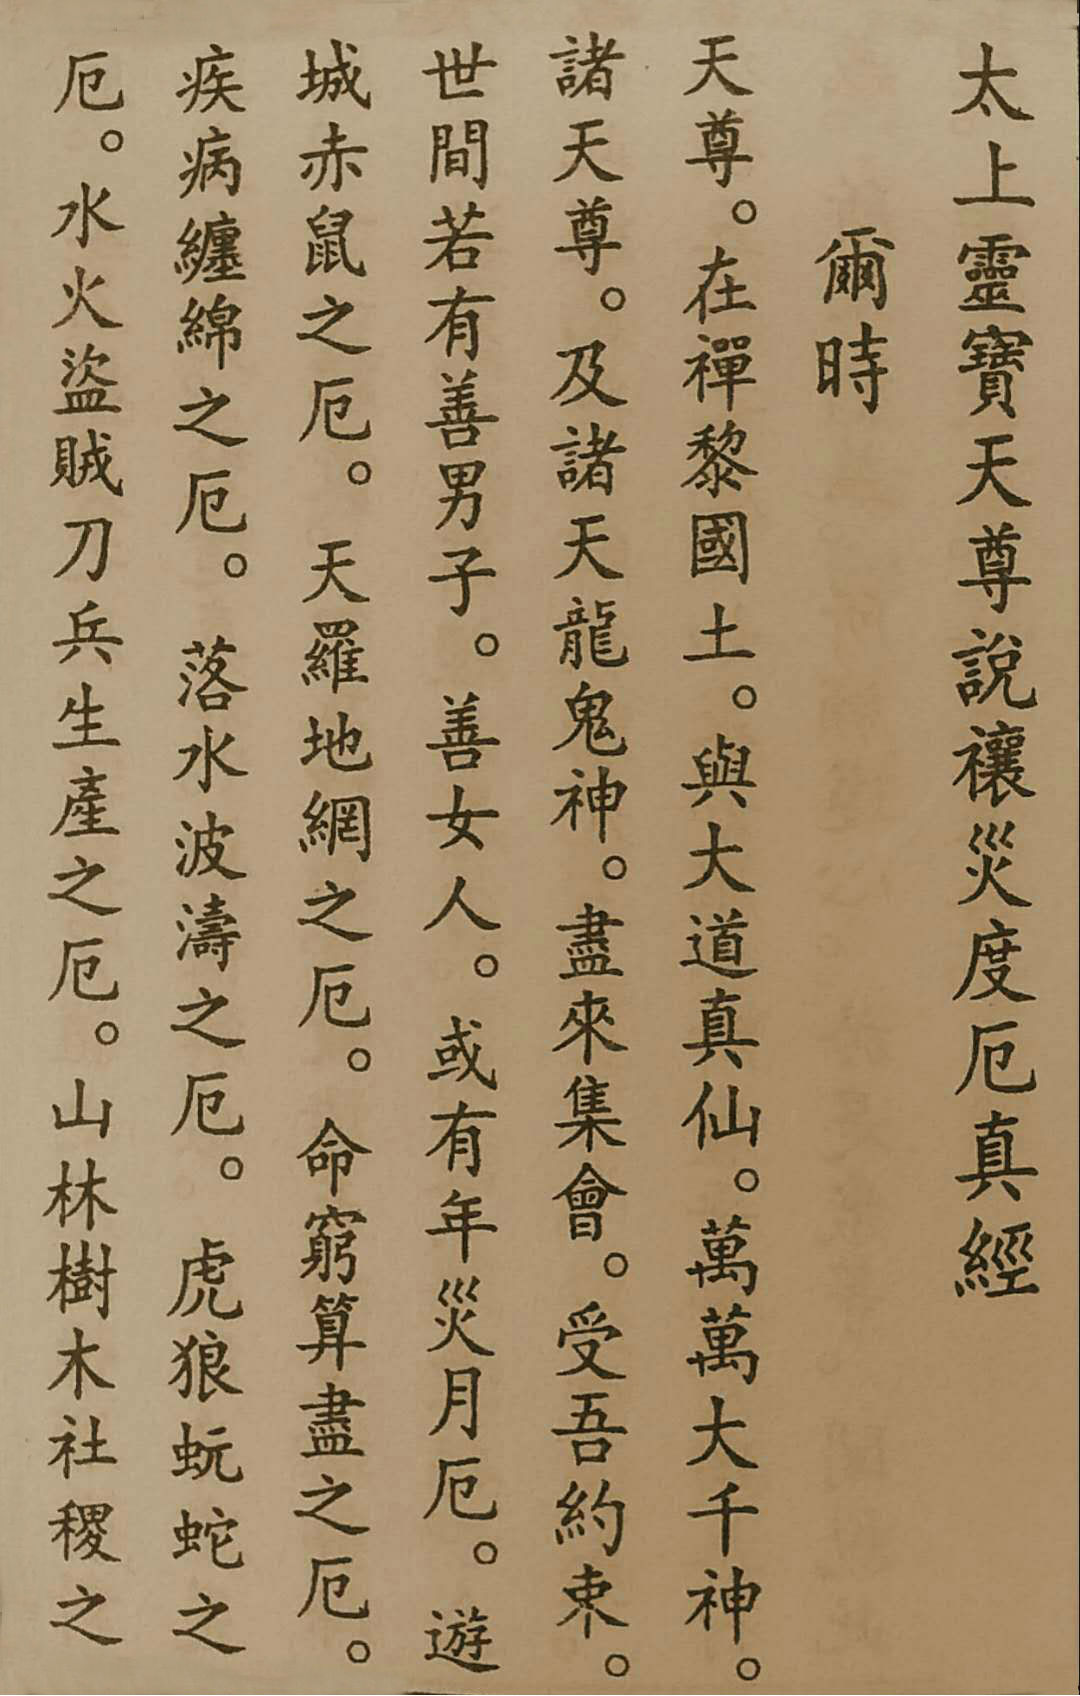 太上靈寶天尊說禳災度厄真經
爾時
天尊。在禪黎國土。與大道真仙。萬萬大千神。
諸天尊。及諸天龍鬼神。盡來集會。受吾約束。
世間若有善男子。善女人。或有年災月厄。遊
城赤鼠之厄。天羅地網之厄。命窮算盡之厄。
疾病纏綿之厄。落水波濤之厄。虎狼蚖蛇之
厄。水火盜賊刀兵生產之厄。山林樹木社稷之